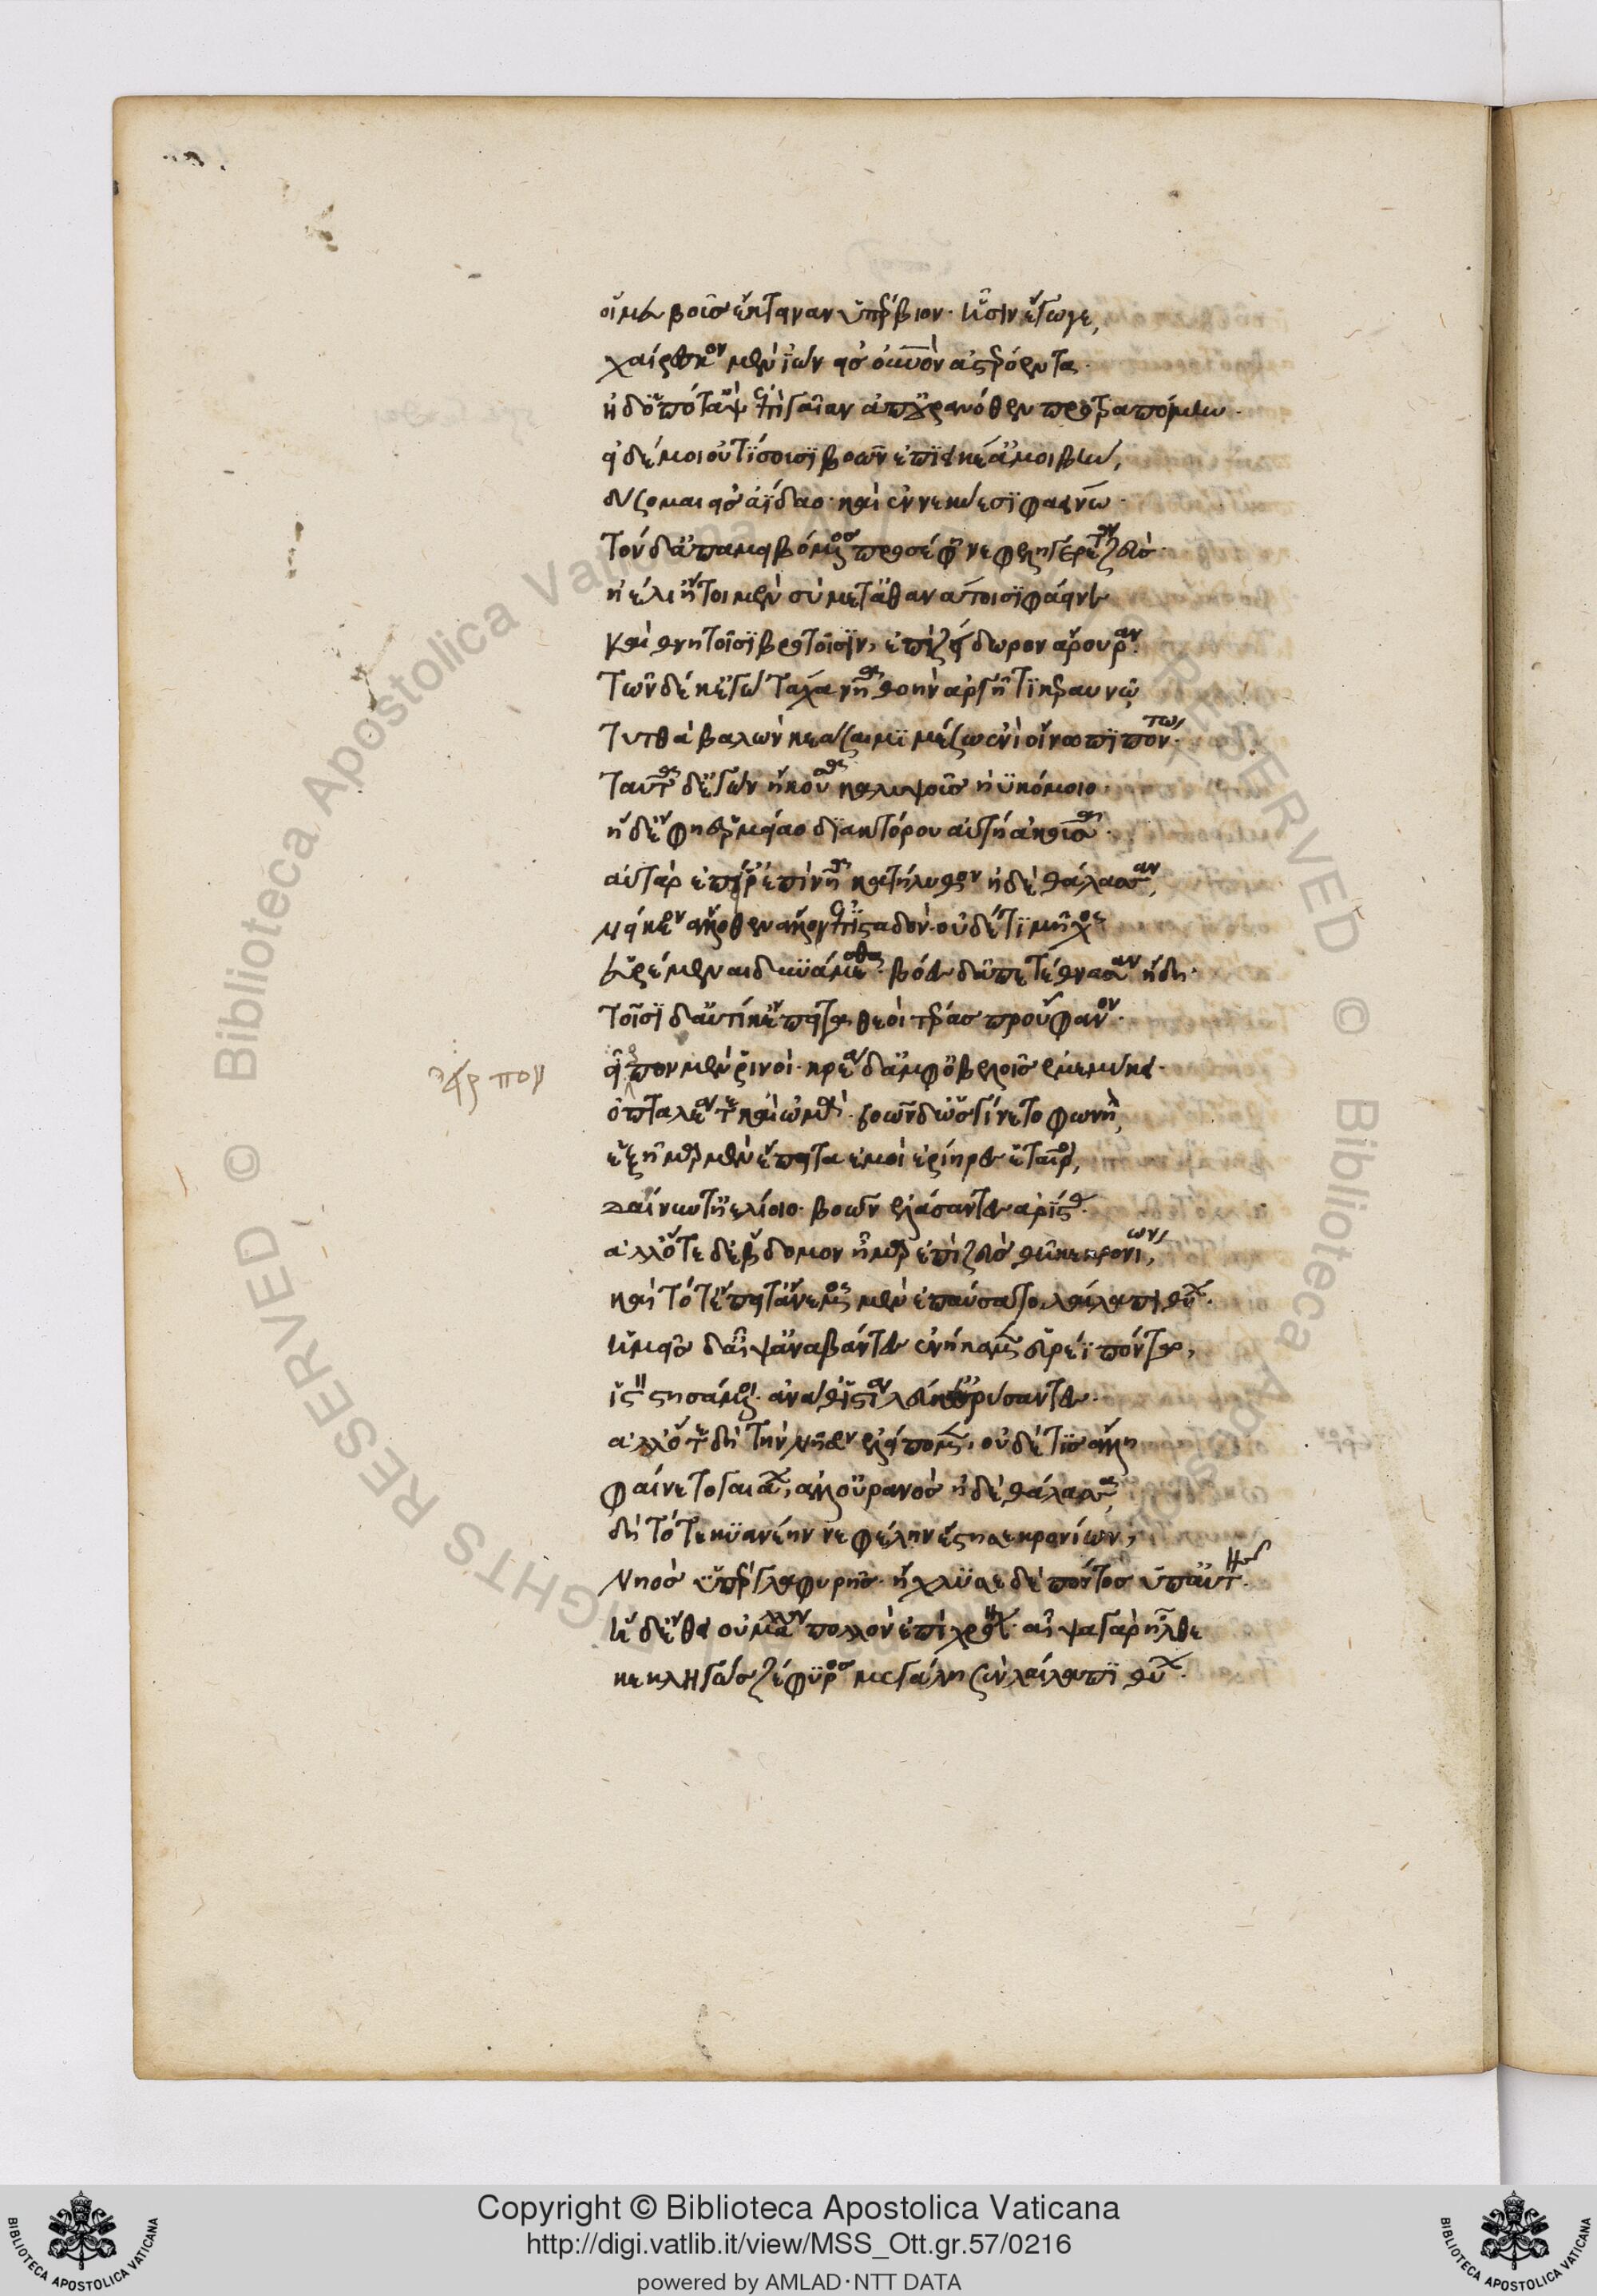 οἵ μευ βοῦς ἔκταναν ὑπέρβιον· ᾗσιν ἔγωγε,
χαίρεσκον μὲν ἰὼν εἰς οὐρανὸν ἀστερόεντα·
ἠδ' ὁπότ' ἂψ ἐπὶ γαῖαν ἀπ' οὐρανόθεν προτραποίμην·
εἰ δέ μοι οὐ τίσουσι βοῶν ἐπιεικέ' ἀμοιβήν,
δύσομαι εἰς ἀΐδαο· καὶ ἐν νεκύεσσι φαείνω·
Τὸν δ' ἀπαμειβόμενος προσέφη νεφεληγερέτα ζεύς·
ἠέλι' ἤτοι μὲν σὺ μετ' ἀθανάτοισι φάεινε
καὶ θνητοῖσι βροτοῖσιν, ἐπὶ ζείδωρον ἄρουραν·
Τῶν δέ κ' ἐγὼ τάχα νῆα θοὴν ἀργῆτι κεραυνῷ
τυτθὰ βαλὼν κεάσαιμι μέσῳ ἐνὶ οἴνοπι πόντω·
Ταῦτα δ' ἐγὼν ἤκουσα καλυψοῦς ἠϋκόμοιο
ἡ δ' ἔφη ἑρμείαο διακτόρου αὐτὴ ἀκοῦσαι·
αὐτὰρ ἐπεί ῥ' ἐπὶ νῆα κατήλυθον ἠδὲ θάλασσαν,
νείκεον ἄλλοθεν ἄλλον ἐπισταδόν· οὐδέ τι μῆχος
εὑρέμεναι δυνάμεσθα· βόες δ' ἀπετέθνασαν ἤδη·
Τοῖσι δ' αὐτίκ' ἔπειτα θεοὶ τέρας προὔφαινον·
εἷρπον μὲν ῥινοί· κρέα δ' ἀμφ' ὀβελοῖς ἐμεμύκει·
ὀπταλέα τε καὶ ὠμά· βοῶν δ' ὣς γίνετο φωνή,
ἑξῆμαρ μὲν ἔπειτα ἐμοὶ ἐρίηρες ἑταῖροι,
δαίνυντ' ἠελίοιο· βοῶν ἐλάσαντες ἀρίστας·
ἀλλ' ὅτε δὲ ἕβδομον ἦμαρ ἐπὶ ζεὺς θῆκε κρονίων,
καὶ τότ' ἔπειτ' ἄνεμος μὲν ἐπαύσατο λαίλαπι θύων·
ἡμεῖς δ' αἶψ' ἀναβάντες ἐνήκαμεν εὐρέϊ πόντῳ,
ἱστὸν στησάμενοι· ἀνά θ' ἱστία λεύκ' ἐρύσαντες·
ἀλλ' ὅτε δὴ τὴν νῆσον ἐλείπομεν, οὐδέ τις ἄλλη
φαίνετο γαιάων, ἀλλ' οὐρανὸς ἠδὲ θάλασσα,
δὴ τότε κυανέην νεφέλην ἔστησε κρονίων,
νηὸς ὑπὲρ γλαφυρῆς· ἤχλυσε δὲ πόντος ὑπ' αὐτῆς·
ἡ δ' ἔθει οὐ μάλα πολλὸν ἐπὶ χρόνον· αἶψα γὰρ ἦλθε
κεκληγὼς ζέφυρος μεγάλῃ σὺν λαίλαπι θύων·
εἷρπον
Copyright © Biblioteca Apostolica Vaticana
http://digi.vatlib.it/view/MSS_Ott.gr.57/0216
powered by AMLAD·NTT DATA